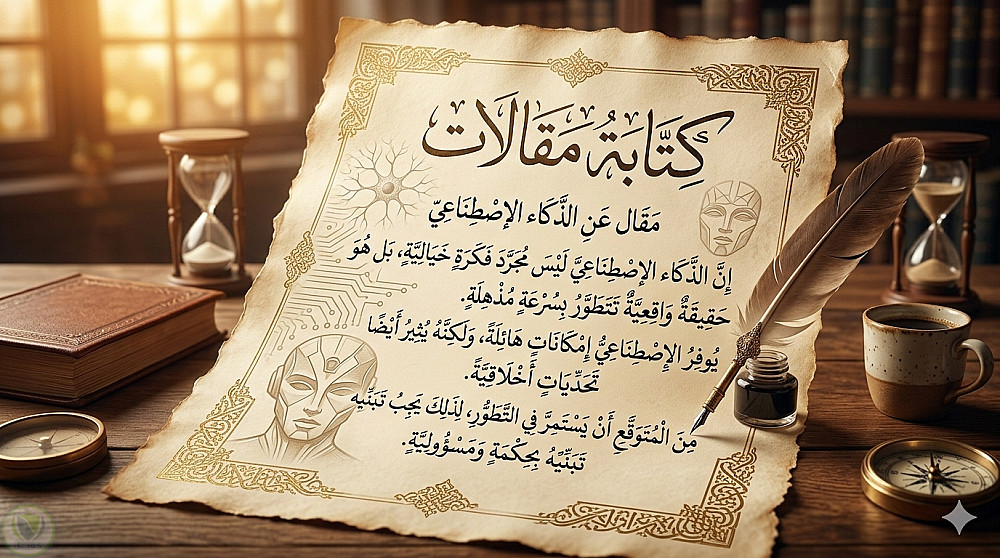 كِتَّابَةُ مَقَالَات
مَقَال عَنِ الذَّكَاء الإصْطِنَاعِيّ
إِنَّ الذَّكَاء الإصْطِنَاعِيَّ لَيْسَ مُجَرَّدَ فَكَرَةٍ خَيَالِيَّةٍ، بَل هُوَ
حَقِيقَةٌ وَاقِعِيَّةٌ تَتَطَوَّرُ بِسُرْعَةٍ مُذْهِلَةٍ.
يُوفِرُ الإصْطِنَاعِيُّ إِمْكَانَاتٍ هَائِلَةً، وَلَكِنَّهُ يُثِيرُ أَيْضًا
تَحَدِّيَاتٍ أَخْلَاقِيَّةً.
مِنَ الْمُتَوَقَّعِ أَنْ يَسْتَمِرَّ فِي التَّطَوُّرِ، لِذَلِكَ يَجِبُ تَبَنِّيه
تَبَنِّيْهُ بِحِكْمَةٍ وَمَسْؤُولِيَّةٍ.